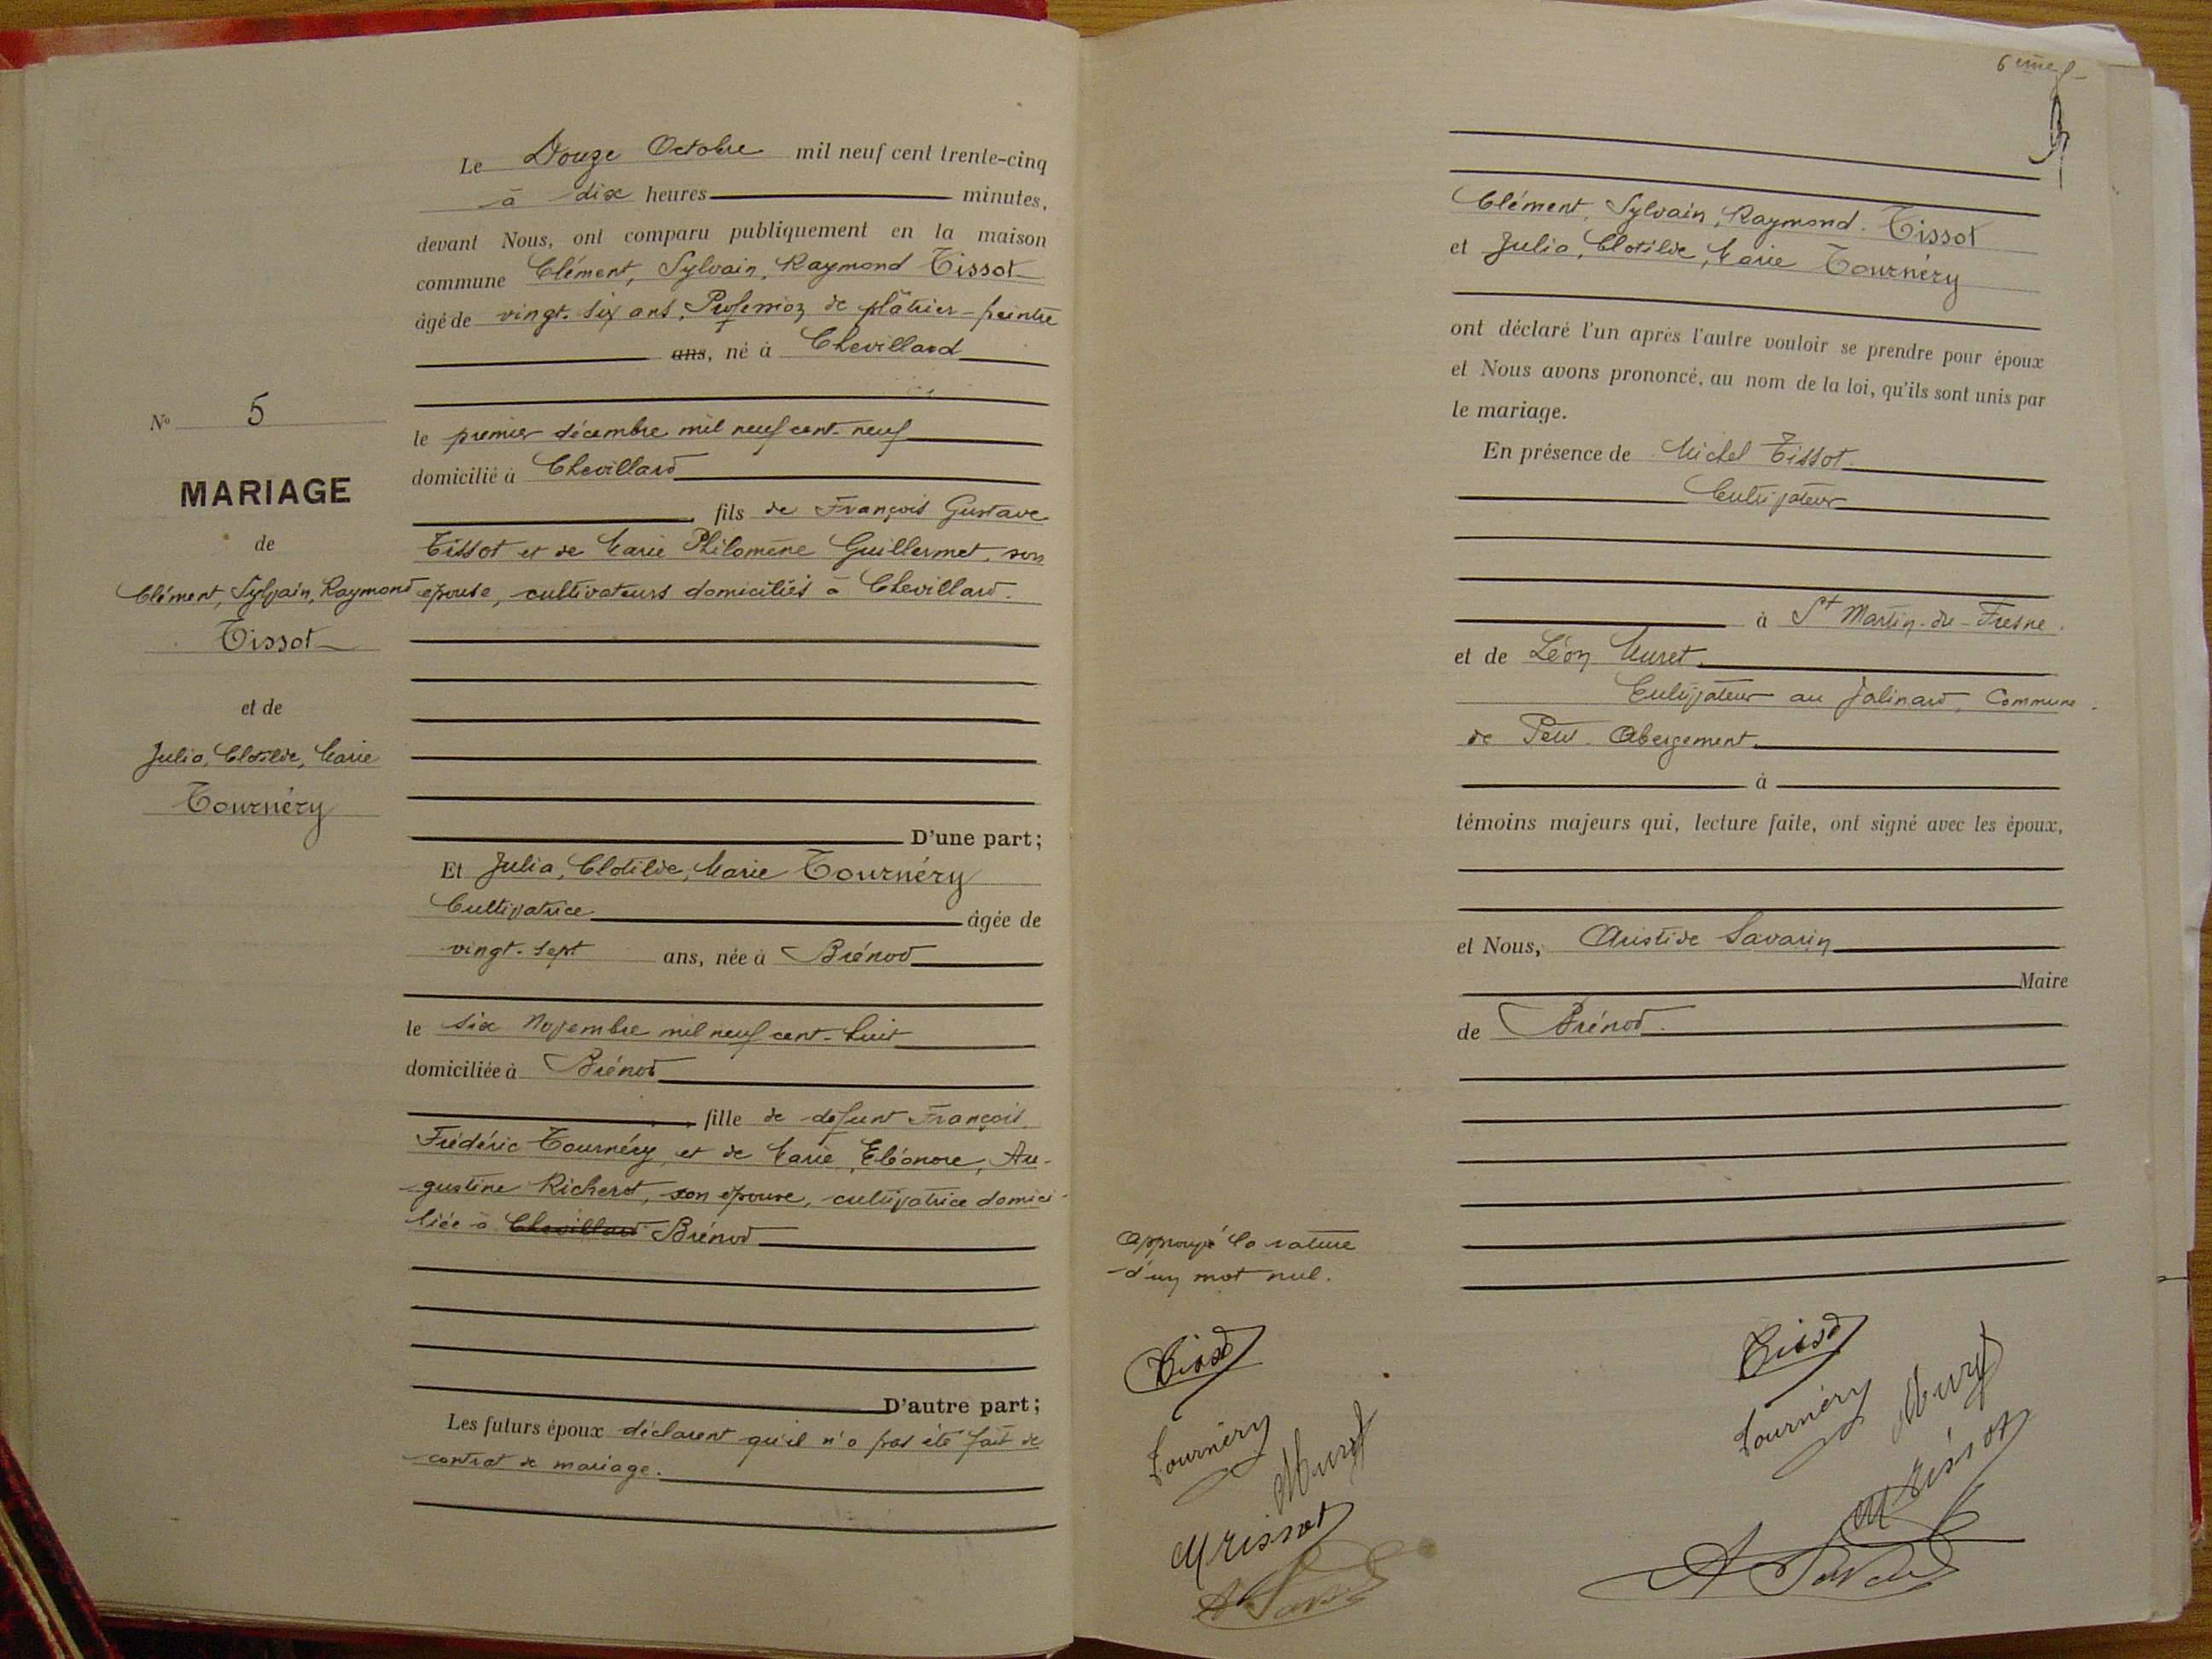 Le Douze Octobre mil neuf cent trente-cinq
à dix heures minutes,
devant Nous, ont comparu publiquement en la maison
commune Clément, Sylvain, Raymond Tissot
âgé de vingt-six ans, Profession de plâtrier-peintre
ans, né à Chevillard
le premier décembre mil neuf cent-neuf
domicilié à Chevillard
, fils de François Gustave
Tissot et de Marie Philomène Guillermet, son
épouse, cultivateurs domiciliés à Chevillard.
D'une part;
Et Julia, Clotilde, Marie Tournéry
Cultivatrice âgée de
vingt-sept ans, née à Brénod
le six Novembre mil neuf cent-huit
domiciliée à Brénod
, fille de défunt François
Frédéric Tournéry et de Marie, Eléonore, Au-
gustine Richerot, son épouse, cultivatrice domici-
liée à Chevillard Brénod
D'autre part;
Les futurs époux déclarent qu'il n'a pas été fait de
contrat de mariage.
No 5
MARIAGE
de
Clément, Sylvain, Raymond
Tissot
et de
Julia, Clotilde, Marie
Tournéry
6 ème f
Clément, Sylvain, Raymond. Tissot
et Julia, Clotilde, Marie Tournéry
ont déclaré l'un après l'autre vouloir se prendre pour époux
et Nous avons prononcé, au nom de la loi, qu'ils sont unis par
le mariage.
En présence de Michel Tissot.
Cultivateur
à St Martin-du-Fresne.
et de Léon Muret.
Cultivateur au Jalinard, Commune
de Petit-Abergement.
à
témoins majeurs qui, lecture faite, ont signé avec les époux,
et Nous, Aristide Savarin
Maire
de Brénod.
Approuvé la rature
d'un mot nul.
Tissot
Tournéry
Muret
M Tissot
A Savarin
Tissot
Tournéry
Muret
M Tissot
A Savarin